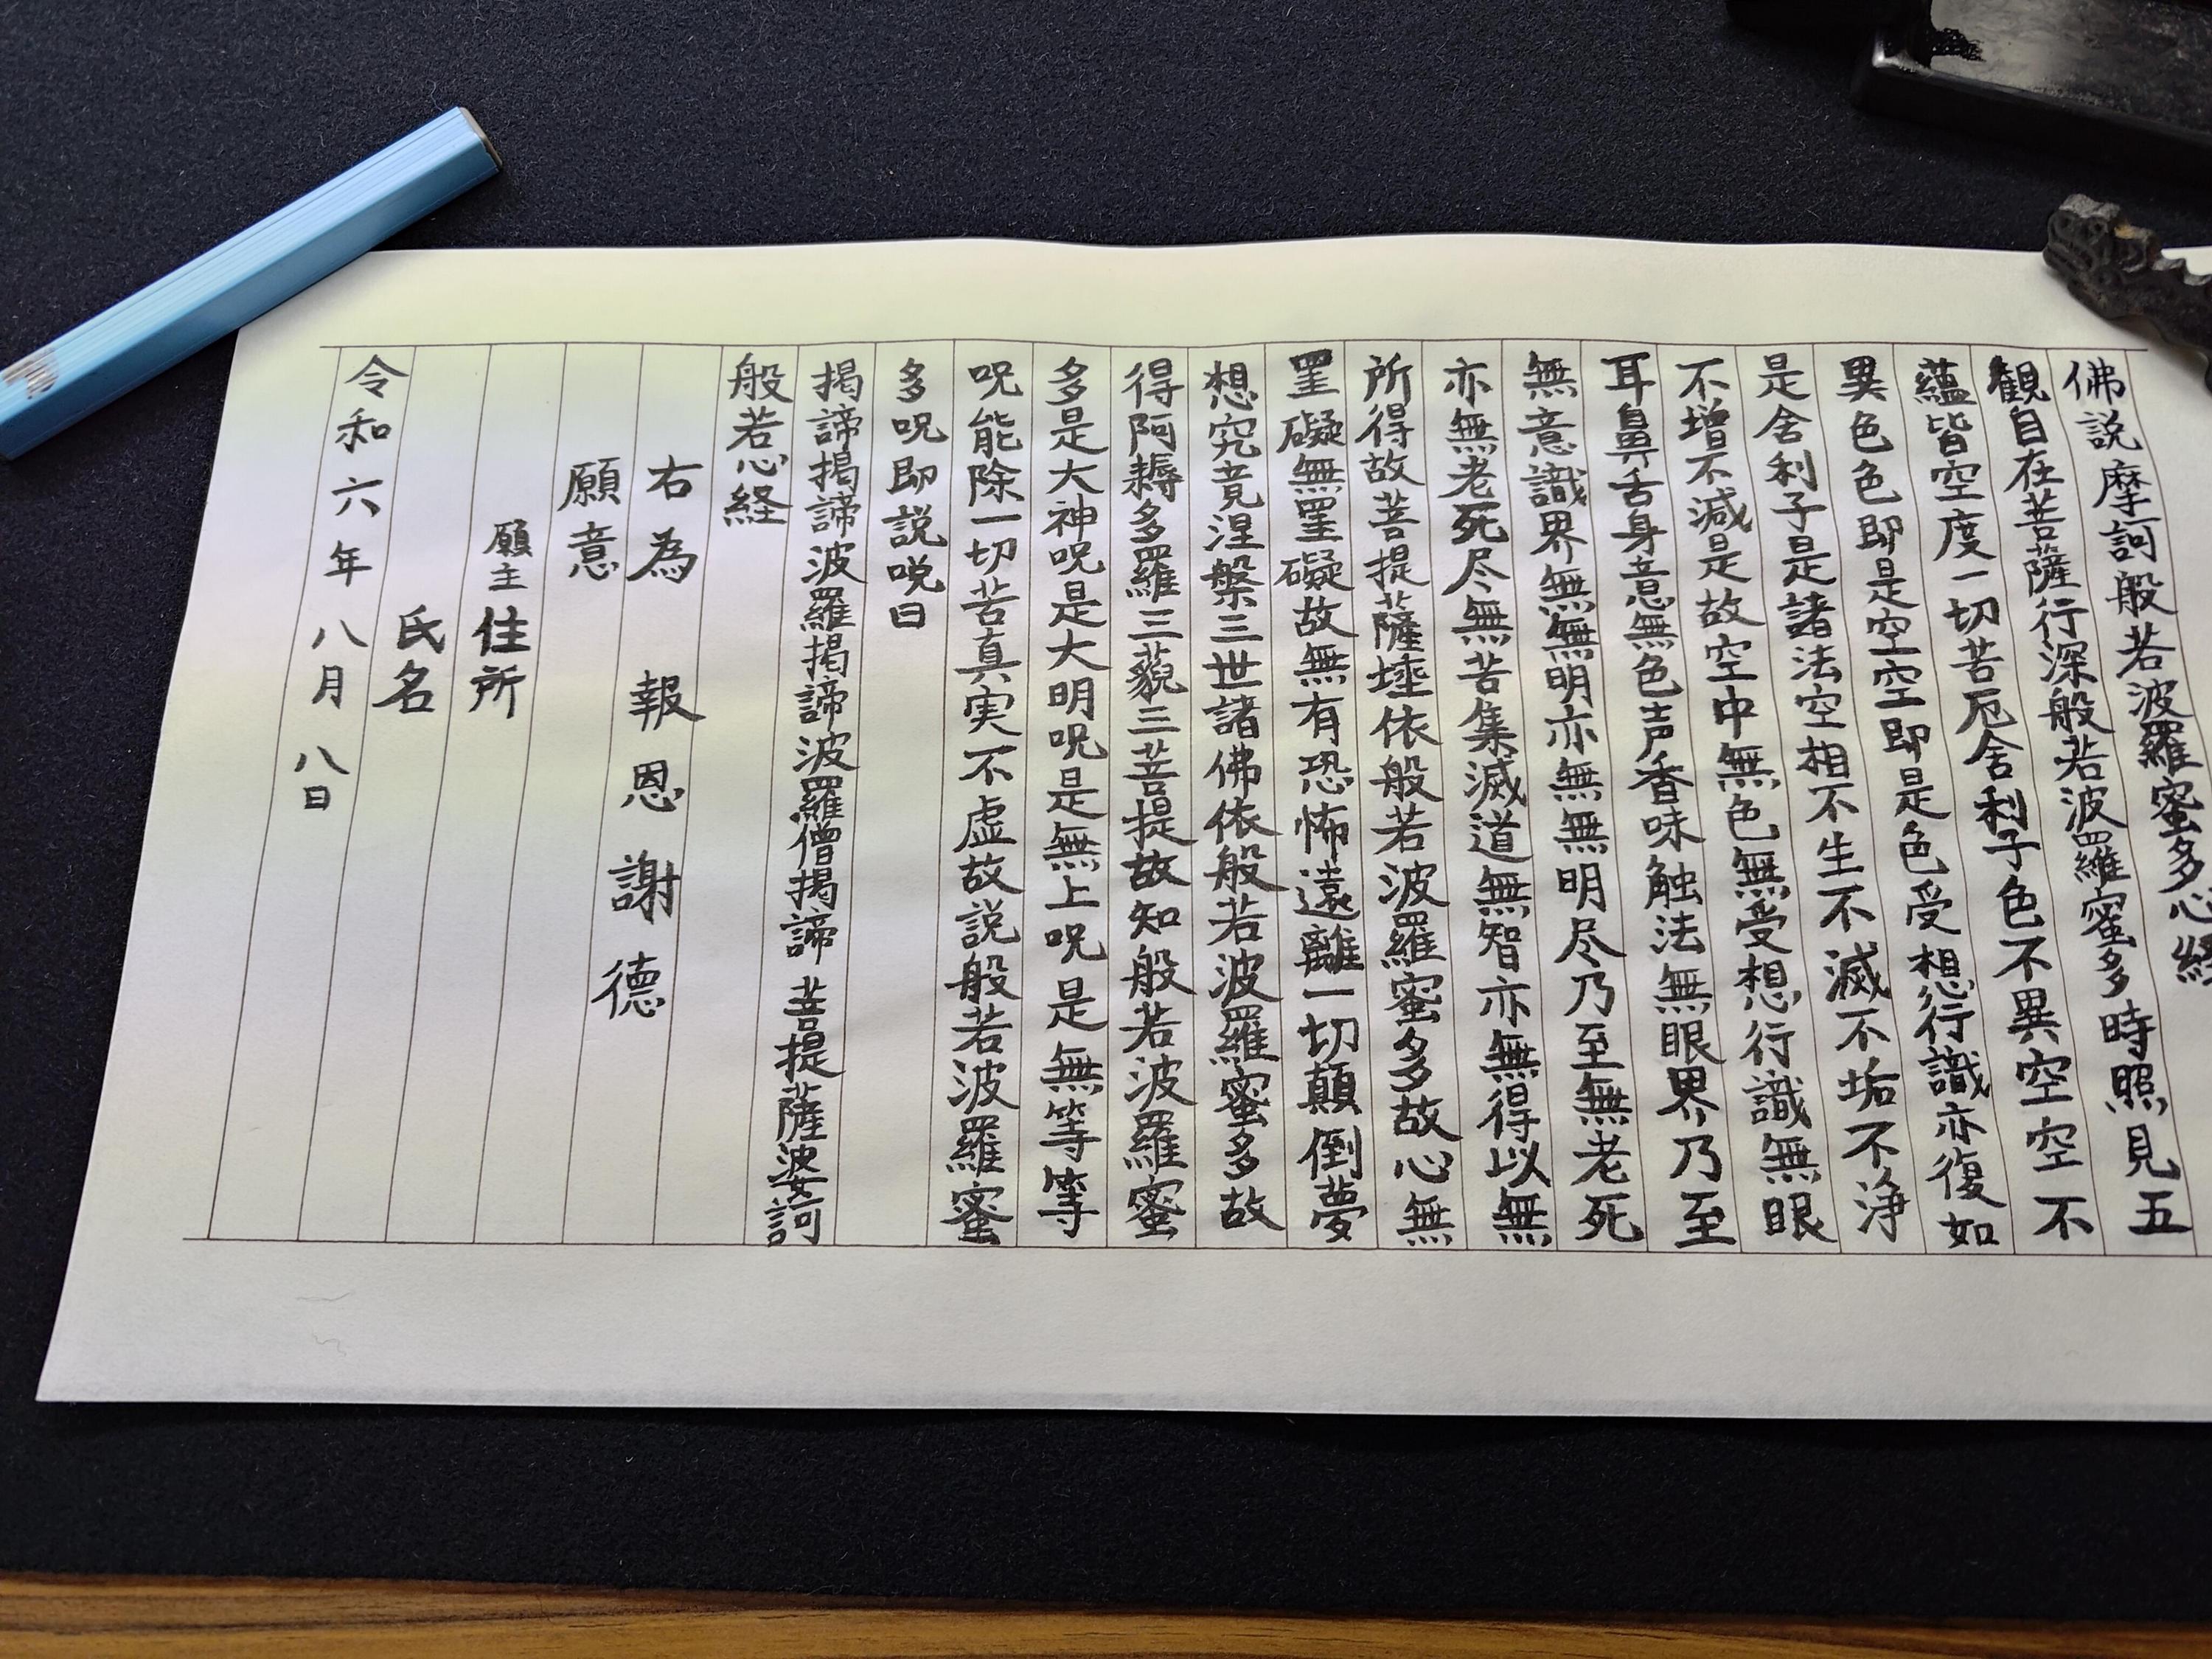 佛説摩訶般若波羅蜜多心経
観自在菩薩行深般若波羅蜜多時照見五
蘊皆空度一切苦厄舎利子色不異空空不
異色色即是空空即是色受想行識亦復如
是舎利子是諸法空相不生不滅不垢不浄
不増不減是故空中無色無受想行識無眼
耳鼻舌身意無色声香味触法無眼界乃至
無意識界無無明亦無無明尽乃至無老死
亦無老死尽無苦集滅道無智亦無得以無
所得故菩提薩埵依般若波羅蜜多故心無
罣礙無罣礙故無有恐怖遠離一切顛倒夢
想究竟涅槃三世諸佛依般若波羅蜜多故
得阿耨多羅三藐三菩提故知般若波羅蜜
多是大神呪是大明呪是無上呪是無等等
呪能除一切苦真実不虚故説般若波羅蜜
多呪即説呪曰
掲諦掲諦波羅掲諦波羅僧掲諦菩提薩婆訶
般若心経
右為 報恩謝徳
願意
願主 住所
氏名
令和六年八月八日